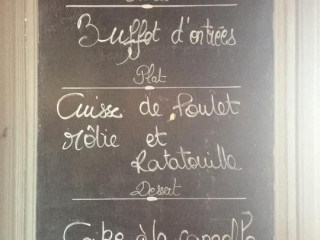 Buffet d'entrées
Plat
Cuisse de Poulet
rôtie et
Ratatouille
Dessert
Cake à la cannelle